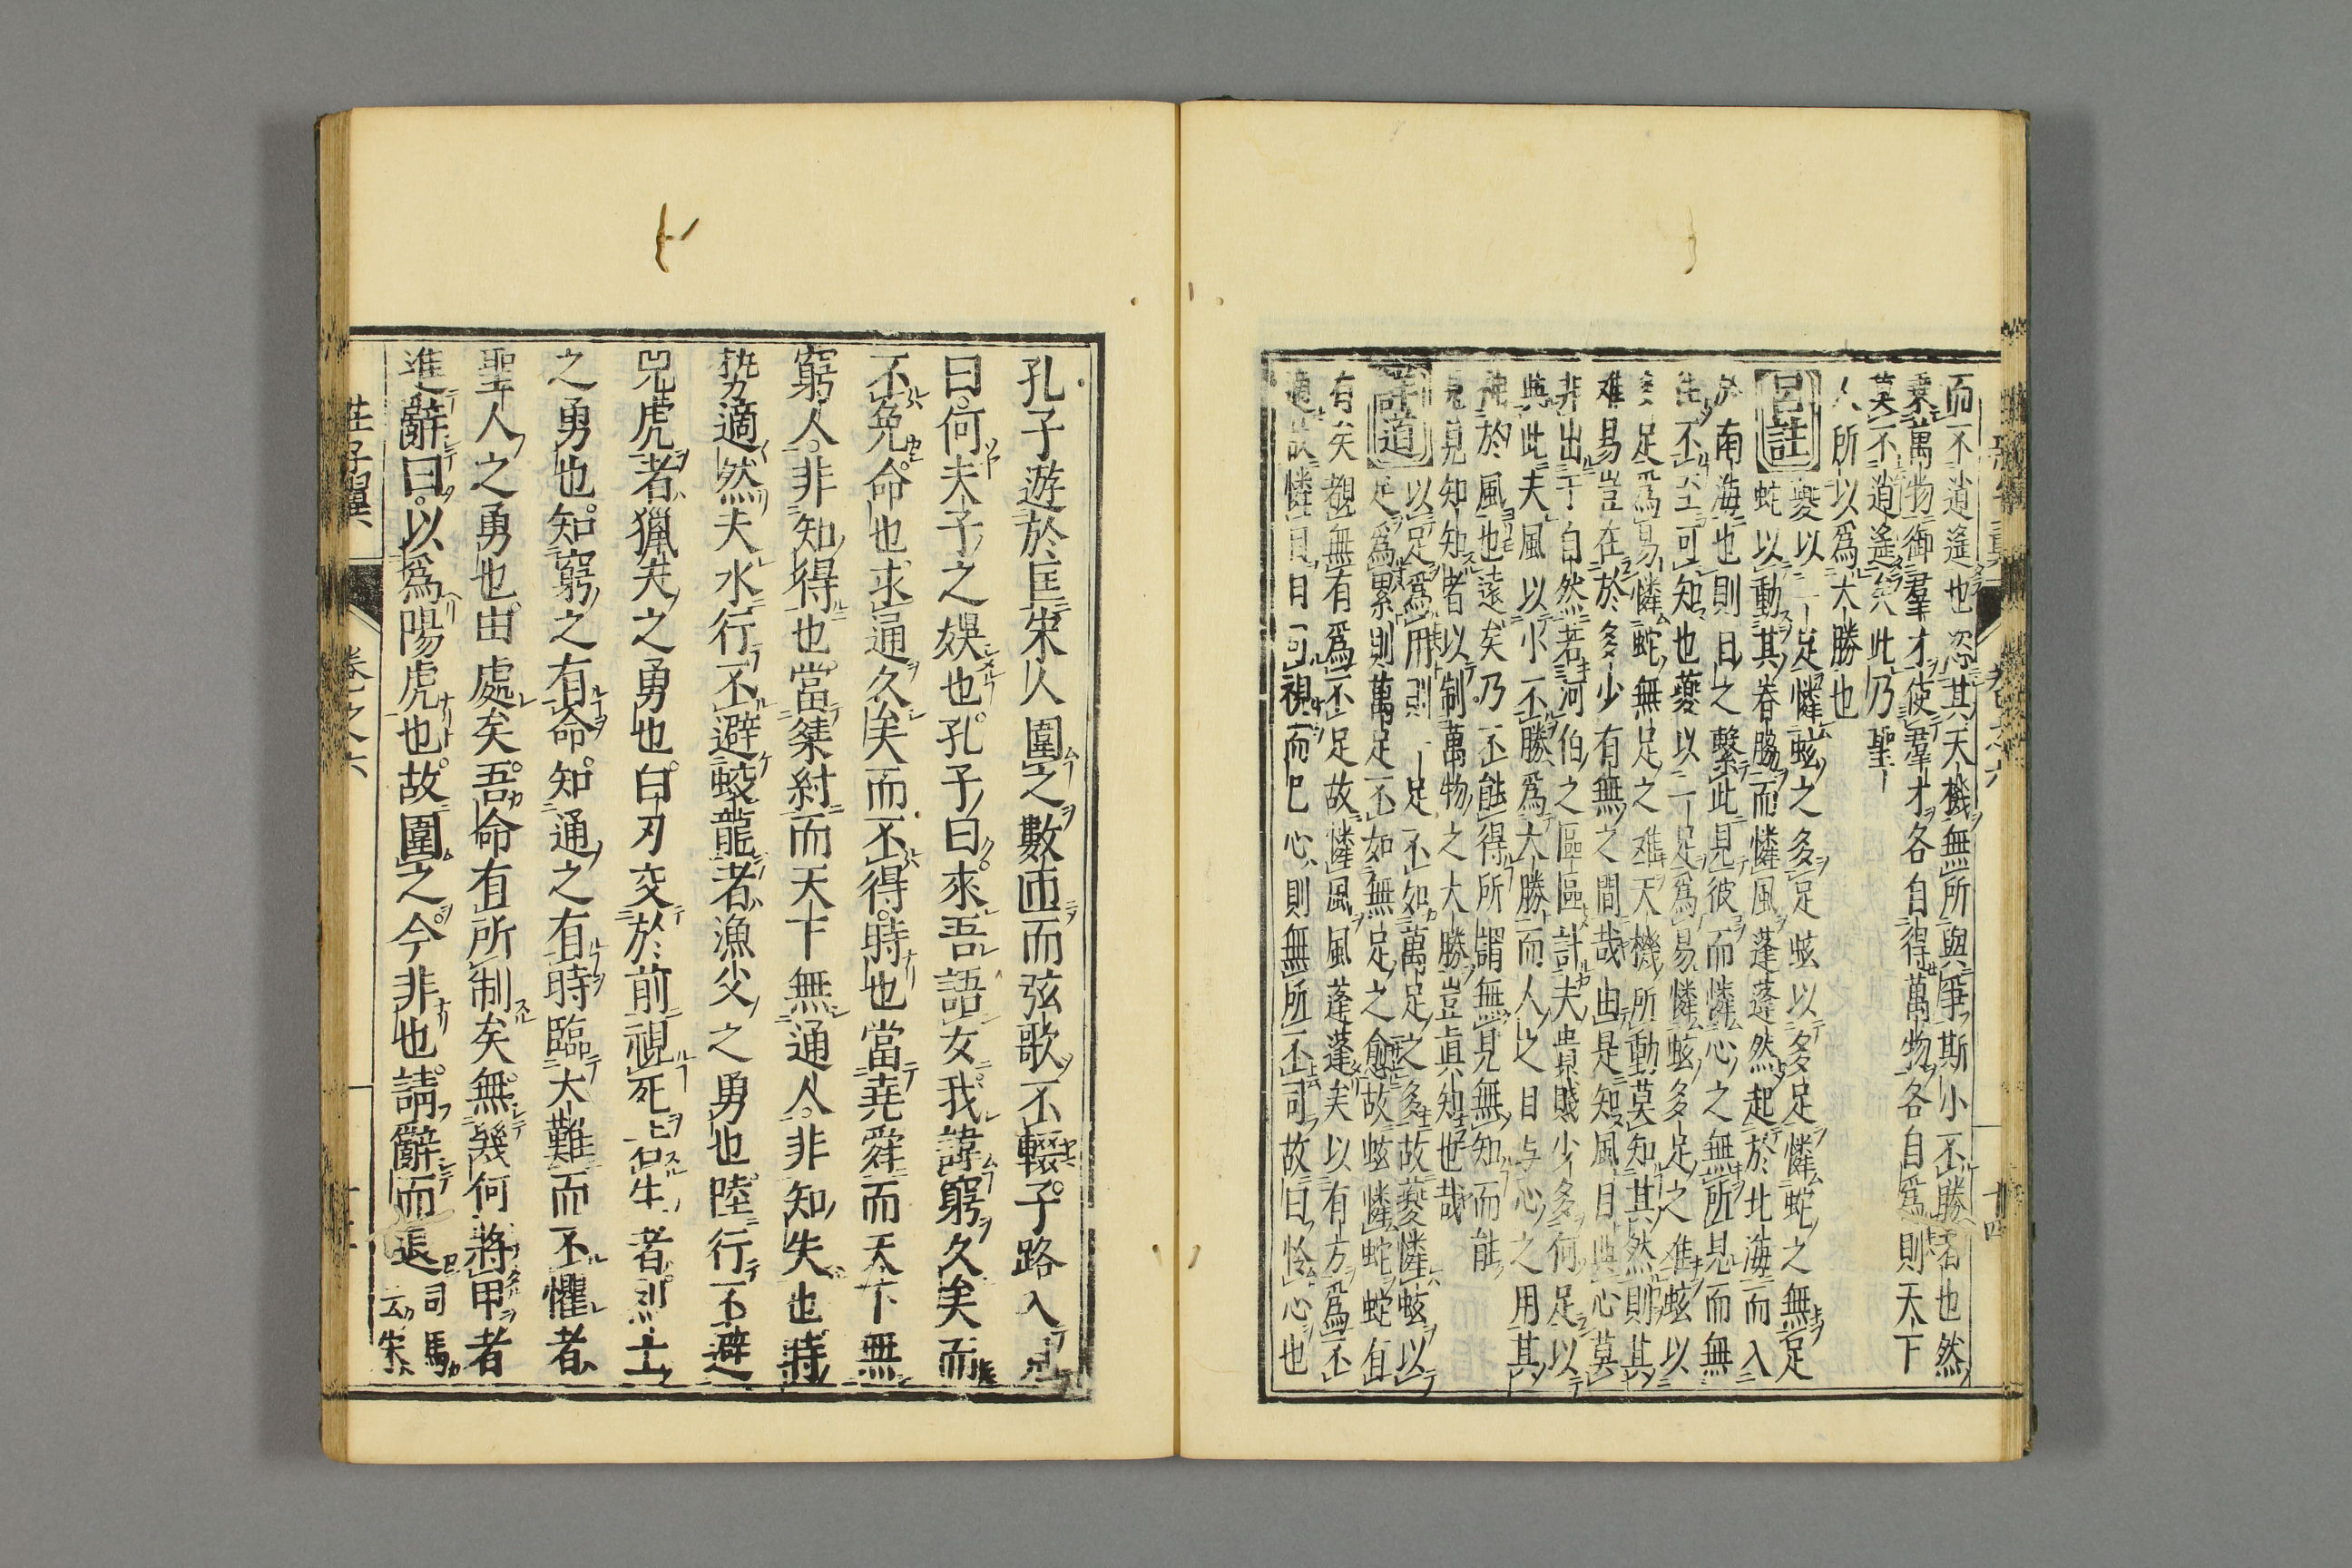 而不逍遙也恣其天機無所與爭斯小不勝者也然
乗萬物御羣才使羣才各自得萬物各自爲則天下
莫不逍遙矣此乃聖
人所以爲大勝也
呂註
夔以一足憐蚿之多足蚿以多足憐蛇之無足
蛇以動其脊脇而憐風蓬蓬然起於北海而入
於南海也則目之繫此見彼而憐心之無所見而無
往不至可知也夔以一足爲易憐蚿多足之难蚿以
足爲易憐蛇無足之难天機所動莫知其然則其
难易豈在於多少有無之間哉由是知風目與心莫
非出于自然若河伯之區區計夫貴賤少多何足以
與此夫風以小不勝爲大勝而人之目与心之用其
神於風也遠矣乃不能得所謂無見無知而能
見見知知者以制萬物之大勝豈眞知也哉
詳道
以足爲用則一足不如萬足之多故夔憐蚿以
足爲累則萬足不如無足之愈故蚿憐蛇蛇有
有矣觀無有爲不足故憐風風蓬蓬矣以有方爲不
適故憐目目可視而已心則無所不司故曰怜心也
孔子遊於匡宋人圍之數匝而弦歌不輟子路入見
曰何夫子之娯也孔子曰來吾語女我諱窮久矣而
不免命也求通久矣而不得時也當堯舜而天下無
窮人非知得也當桀紂而天下無通人非知失也時
勢適然夫水行不避蛟龍者漁父之勇也陸行不避
兕虎者獵夫之勇也白刃交於前視死若生者烈士
之勇也知窮之有命知通之有時臨大難而不懼者
聖人之勇也由處矣吾命有所制矣無幾何將甲者
進辭曰以爲陽虎也故圍之今非也請辭而退
司馬
云宋
莊子翼
卷之六